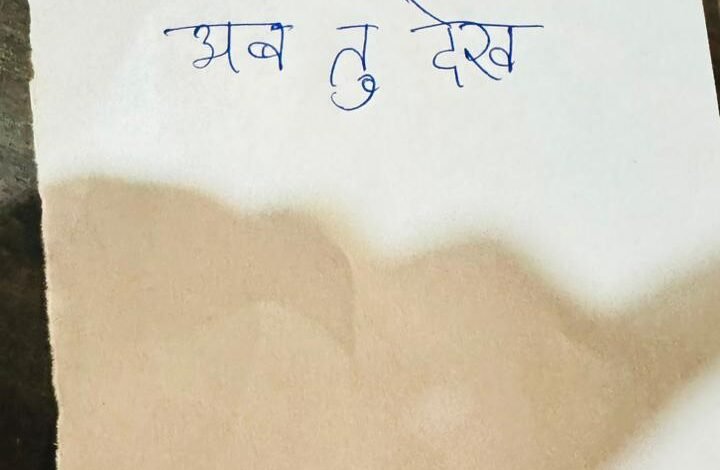 अब तु देख